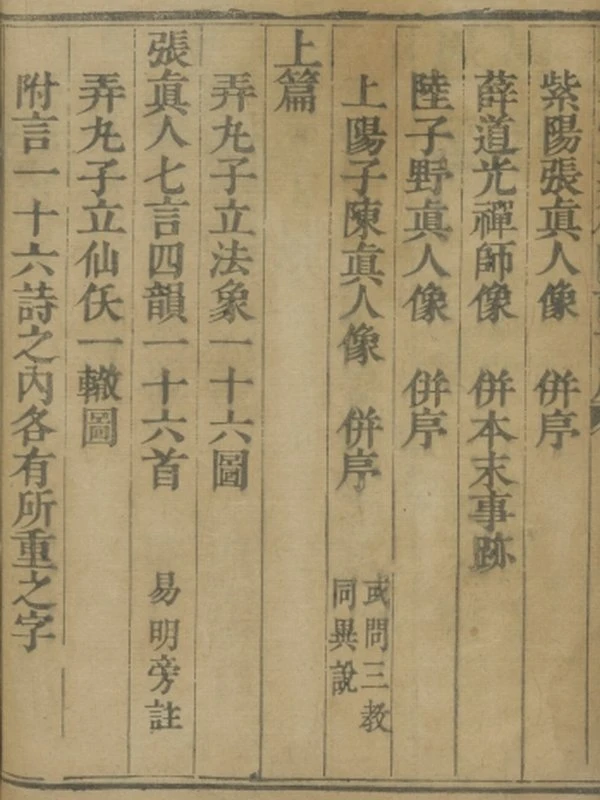 紫陽張眞人像　併序
薛道光禪師像　併本末事跡
陸子野眞人像　併序
上陽子陳眞人像　併序　或問三教同異說
上篇
弄丸子立法象一十六圖
張眞人七言四韻一十六首　易明旁註
弄丸子立仙仸一轍圖
附言一十六詩之內各有所重之字